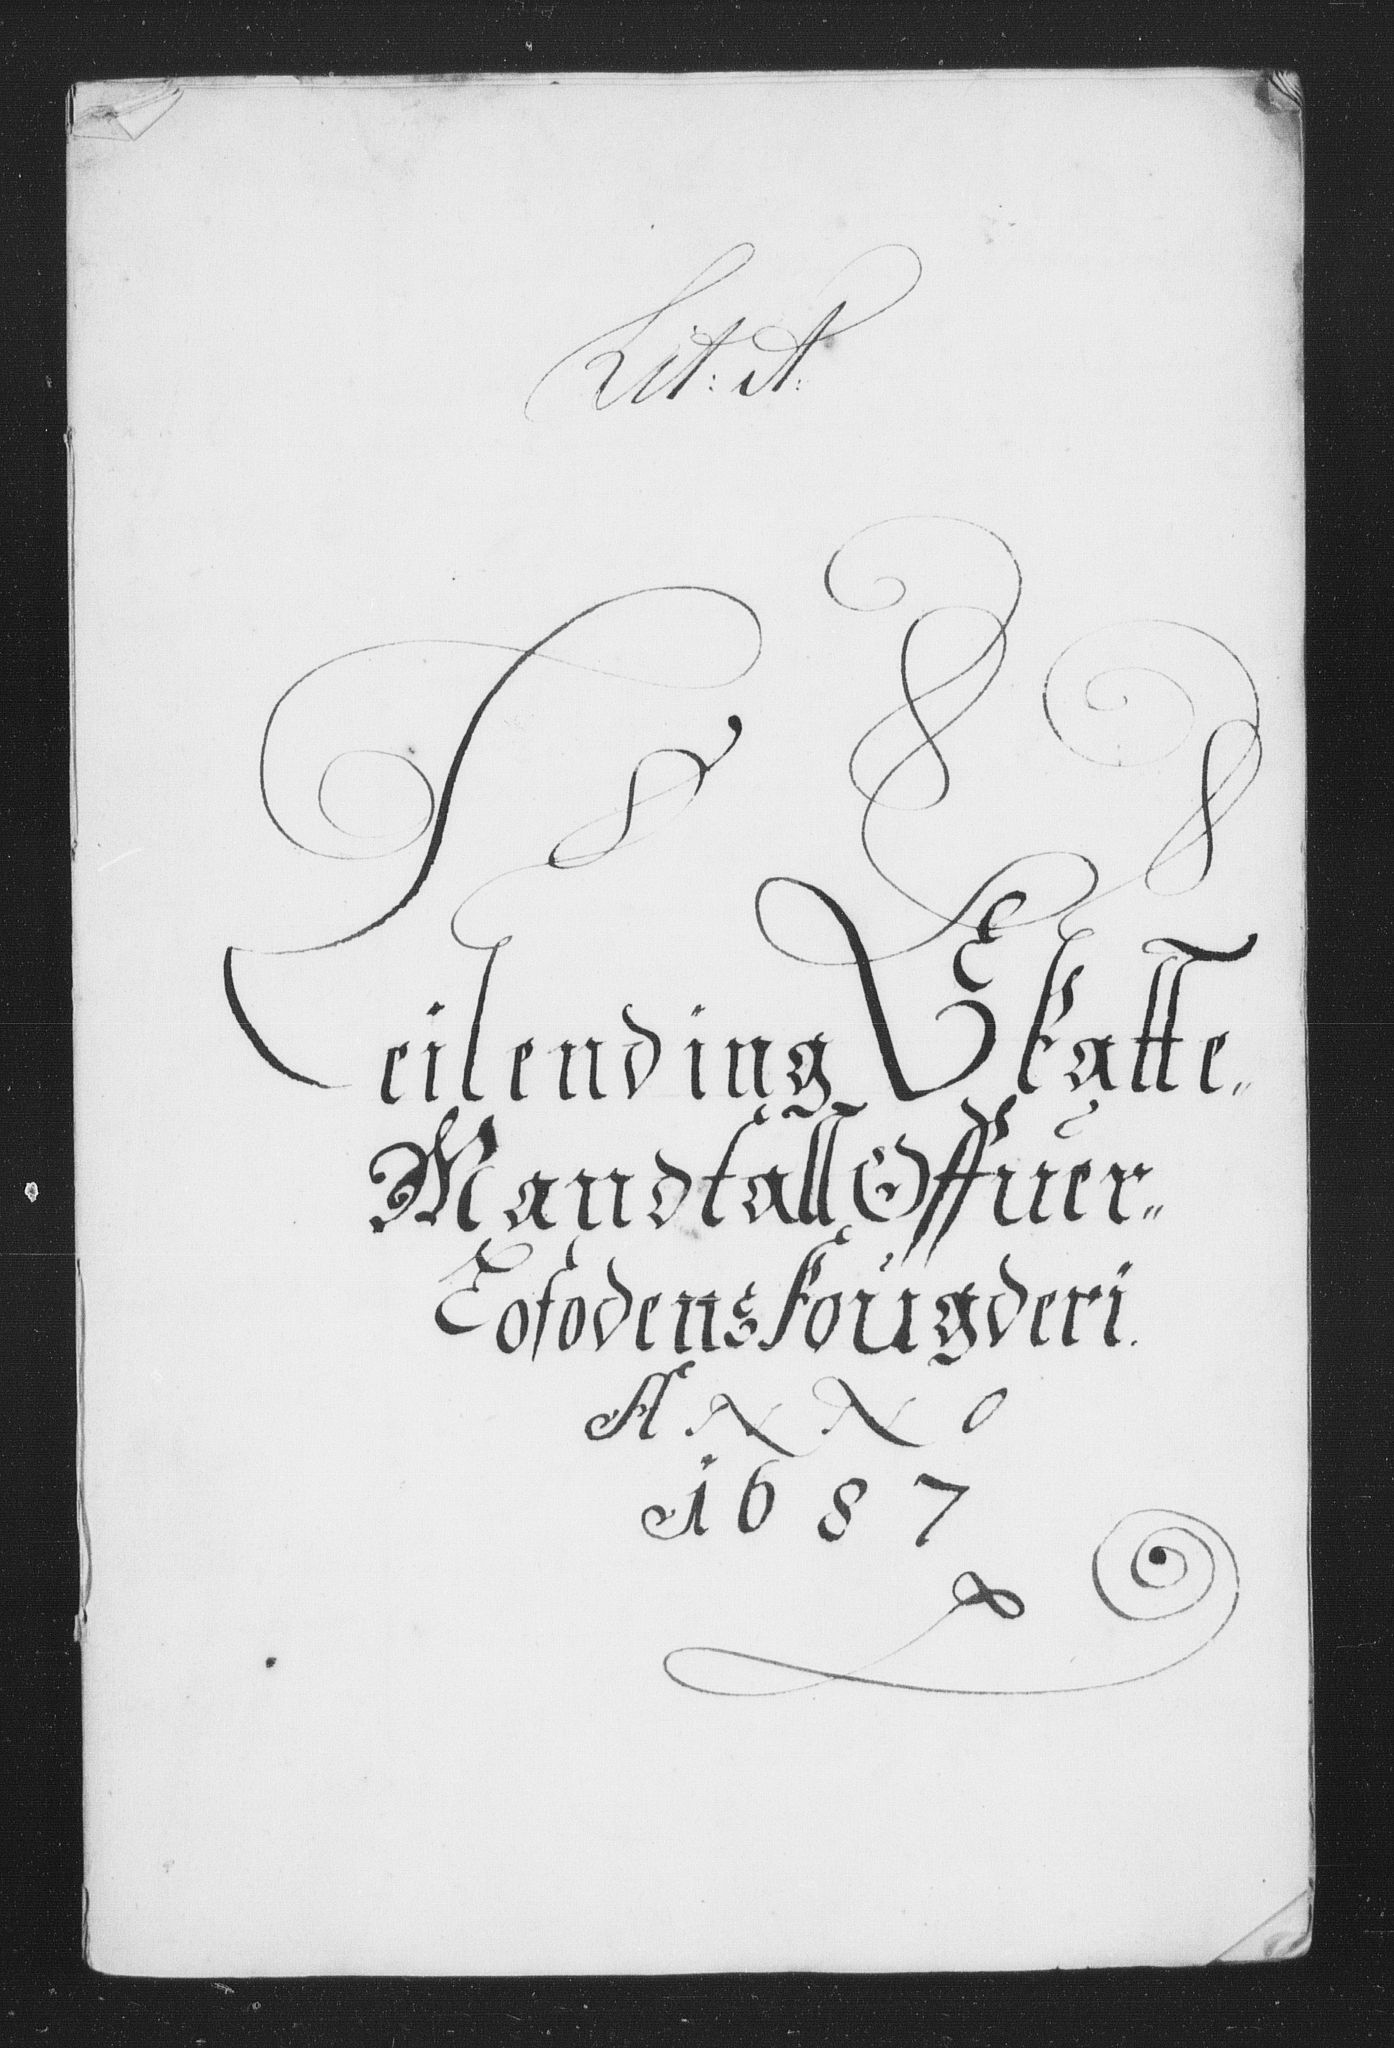 Lit: A:
Leilending Skatte„
Mandtall Offuer„
Lofodens Fougderi.
ANNO
1687